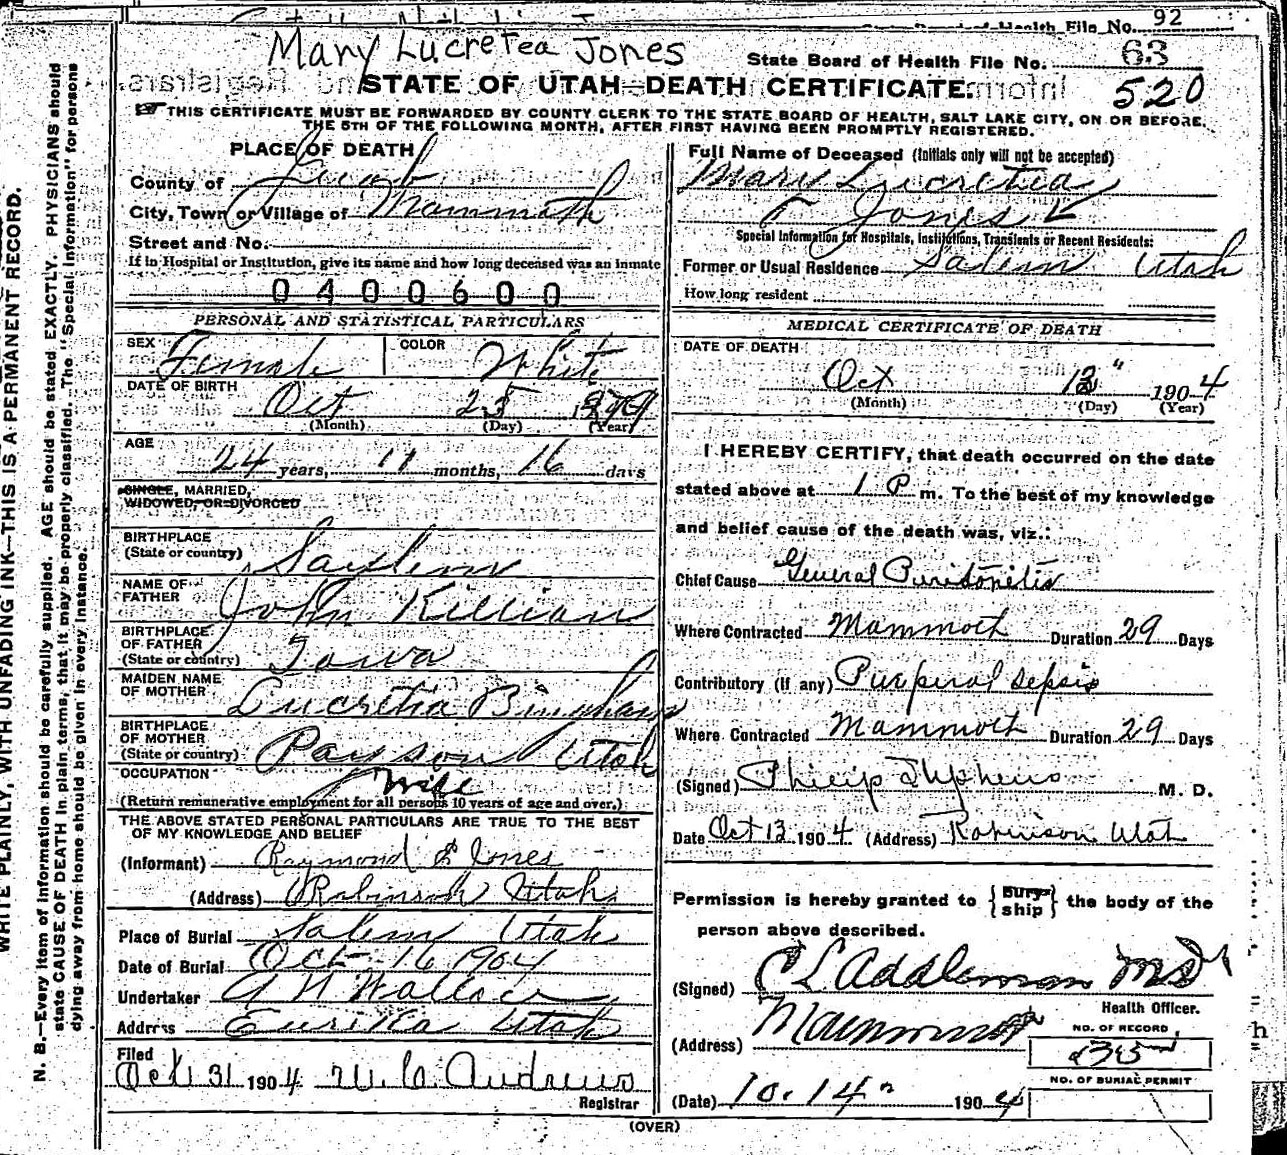 92
Health File No.
Mary Lucretea Jones
State Board of Health File No. 63
STATE OF UTAH—DEATH CERTIFICATE.
520
THIS CERTIFICATE MUST BE FORWARDED BY COUNTY CLERK TO THE STATE BOARD OF HEALTH, SALT LAKE CITY, ON OR BEFORE
THE 5TH OF THE FOLLOWING MONTH, AFTER FIRST HAVING BEEN PROMPTLY REGISTERED.
PLACE OF DEATH
County of Juab
City, Town or Village of Mammoth
Street and No.
If in Hospital or Institution, give its name and how long deceased was an inmate
0400600
PERSONAL AND STATISTICAL PARTICULARS
SEX Female COLOR White
DATE OF BIRTH Oct 25 1879
(Month) (Day) (Year)
AGE 24 years, 11 months, 16 days
SINGLE, MARRIED,
WIDOWED, OR DIVORCED
BIRTHPLACE
(State or country) Saylem
NAME OF
FATHER John Killian
BIRTHPLACE
OF FATHER
(State or country) Iowa
MAIDEN NAME
OF MOTHER Lucretia Bingham
BIRTHPLACE
OF MOTHER
(State or country) Payson Utah
OCCUPATION Wife
(Return remunerative employment for all persons 10 years of age and over.)
THE ABOVE STATED PERSONAL PARTICULARS ARE TRUE TO THE BEST
OF MY KNOWLEDGE AND BELIEF
(Informant) Raymond E Jones
(Address) Robinson Utah
Place of Burial Salem Utah
Date of Burial Oct 16 1904
Undertaker A N Wallace
Address Eurika Utah
Filed
Oct 31 1904 W. C. Andrews
Registrar
Full Name of Deceased (Initials only will not be accepted)
Mary Lucretia
Jones
Special Information for Hospitals, Institutions, Transients or Recent Residents:
Former or Usual Residence Salem Utah
How long resident
MEDICAL CERTIFICATE OF DEATH
DATE OF DEATH
Oct 12" 1904
(Month) (Day) (Year)
I HEREBY CERTIFY, that death occurred on the date
stated above at 1 P m. To the best of my knowledge
and belief cause of the death was, viz.:
Chief Cause General Peridonitis
Where Contracted Mammoth Duration 29 Days
Contributory (if any) Purperal sepsis
Where Contracted Mammoth Duration 29 Days
(Signed) Philip M. D.
Date Oct 13 1904 (Address) Robinson Utah
Permission is hereby granted to { bury ship } the body of the
person above described.
(Signed) C L Addleman MD
Health Officer.
(Address) Mammoth
NO. OF RECORD
NO. OF BURIAL PERMIT
(Date) 10. 14 1904
(OVER)
WRITE PLAINLY, WITH UNFADING INK—THIS IS A PERMANENT RECORD.
N. B.—Every item of information should be carefully supplied. AGE should be stated EXACTLY. PHYSICIANS should
state CAUSE OF DEATH in plain terms, that it may be properly classified. The "Special Information" for persons
dying away from home should be given in every instance.